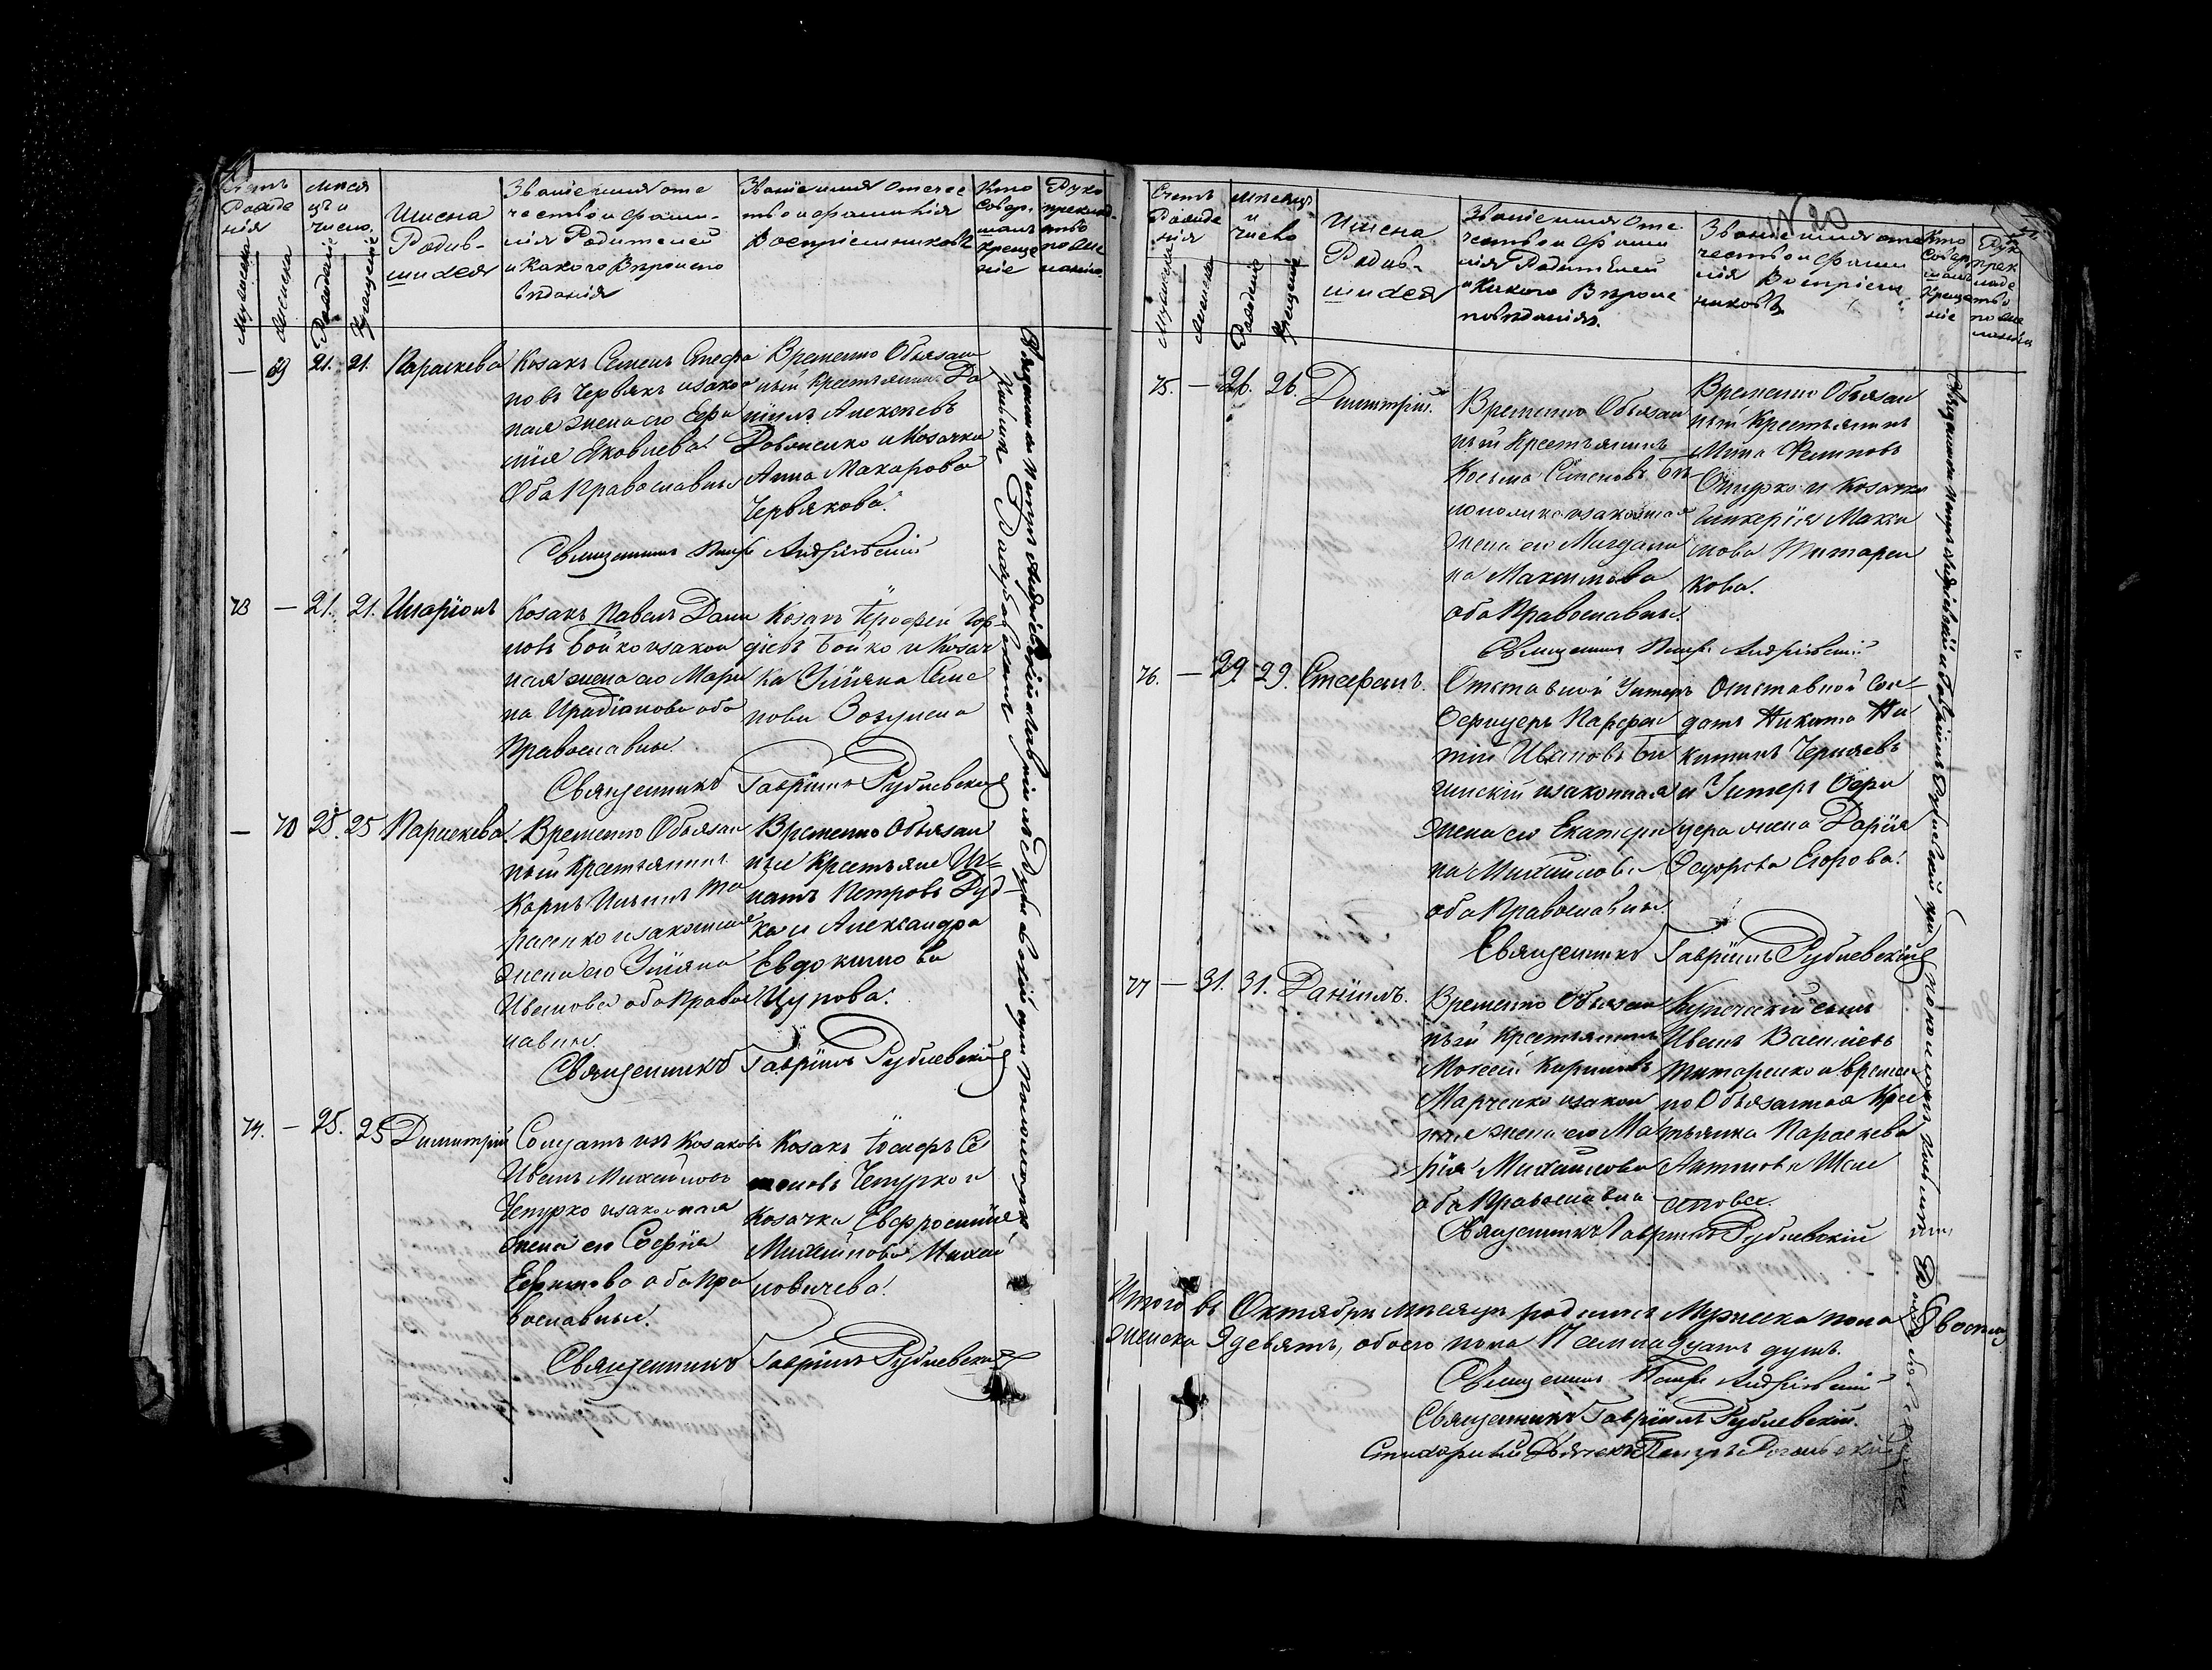 Счетъ Рожде нія
Мужеска
Женска
Мѣся цъ и число.
Рожденія
Крещеніе
Имена Родив- шихся
Званіе имя оте чество и фами- лія Родителей и Какого Вѣроиспо вѣданія
Званіе имя отечес тво и фамилія Воспріемниковъ
Кто Совер- шалъ Креще ніе
Руко приклад- ство по же ланію
— 69 21. 21. Параскева
Козакъ Семенъ Стефа
новъ Червякъ и закон
ная жена его Ефи
мія Яковлева.
Оба Православны
Временно Обязан
ный Крестьянинъ Да
ніилъ Алексѣевъ
Довженко и Козачка
Анна Макарова
Червякова.
Священникъ Петръ Андріевскій
73 — 21. 21. Иларіонъ
Козакъ Павелъ Дани
ловъ Бойко и закон
ная жена его Мари
на Иродіонова оба
Православны
Козакъ Ерофей Гор-
дѣевъ Бойко и Козач
ка Уліяна Семе
нова Возулена
Священникъ Гавріилъ Рублевскій
— 70 25. 25 Параскева.
Временно Обязан
ный Крестьянинъ
Карпъ Ильинъ Та
расенко и законная
жена его Уліяна
Иванова оба Правос
лавны.
Временно Обязан
ные Крестьяне Иг=
натъ Петровъ Дуд-
ка и Александра
Евдокимова
Цупова.
Священникъ Гавріилъ Рублевскій
74. — 25. 25 Димитрій
Солдатъ изъ Козаковъ
Иванъ Михайловъ
Чепурко и законная
жена его Софія
Ефимова оба Пра
вославны.
Козакъ Іосифъ Се
меновъ Чепурко и
Козачка Евфросинія
Михайлова Михай
ловичева.
Священникъ Гавріилъ Рублевскій
№ 20
Счетъ Рожде нія
Мужеска
Женска
Мѣсяцъ и число
Рожденія
Крещеніе
Имена Родив- шихся
Званіе имя Оте- чество и фами лія Родителей и Какого Вѣроис повѣданія.
Званіе имя оте чество и фами лія Воспріем никовъ
Кто Совер шалъ Креще ніе
Рук прик ладс тво по же ланію
75. — 26. 26. Димитрій.
Временно Обязан
ный Крестьянинъ
Косьма Семеновъ
и законная
жена его Магдали
на Максимова
оба Православны.
Временно Обязан
ный Крестьянинъ
Филиповъ
и Козачка
Гликерія Макси
мова Титарен
кова.
Священникъ Петръ Андріевскій
76. — 29 29. Стефанъ.
Отставной Унтеръ
Офицеръ Парфен
тій Ивановъ
и законная
жена его Екатери
на Михайлова
оба Православны.
Отставной Сол-
датъ Никита Ни-
китинъ Черняевъ
и Унтеръ Офи
цера жена Дарія
Федорова Егорова.
Священникъ Гавріилъ Рублевскій
77 — 31. 31. Даніилъ.
Временно Обязан
ный Крестьянинъ
Моисей Кириловъ
Марченко и закон
ная жена его Ма
рія Михайлова
оба Православна
Купеческій сынъ
Иванъ Василіевъ
Титаренко и времен
но Обязанная Крес
тьянка Параскева
Антонова
Священникъ Гавріилъ Рублевскій
Итого въ Октябрѣ мѣсяцѣ родилось Мужеска пола 8 восемь
женска 9 девять, обоего пола 17 семнадцать душъ.
Священникъ Петръ Андріевскій
Священникъ Гавріилъ Рублевскій.
Стихарный Дьячекъ Петръ